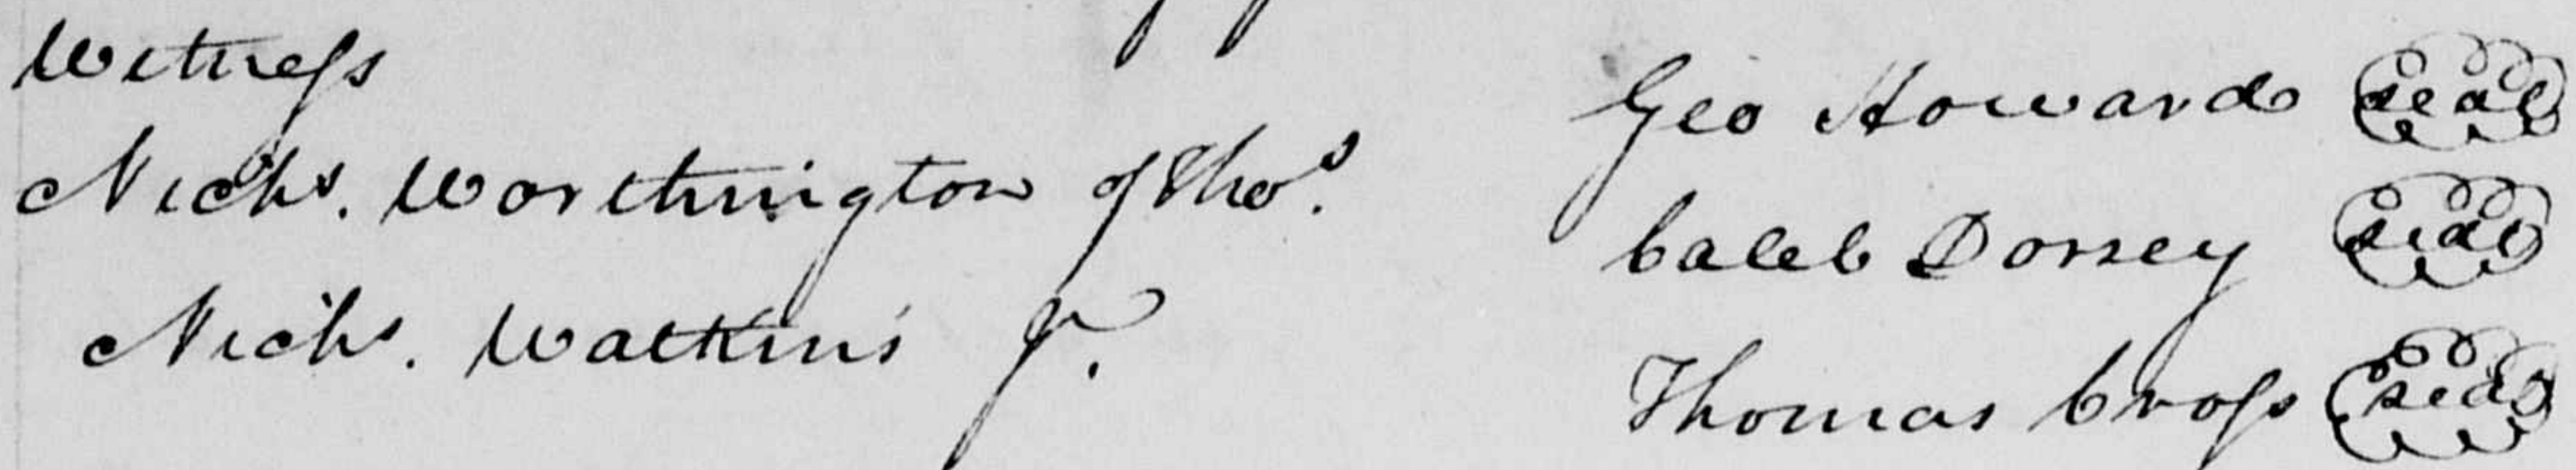 Witness
Nichs. Worthington of Thos.
Nichs. Watkins Jr.
Geo Howard seal
Caleb Dorsey seal
Thomas Cross seal